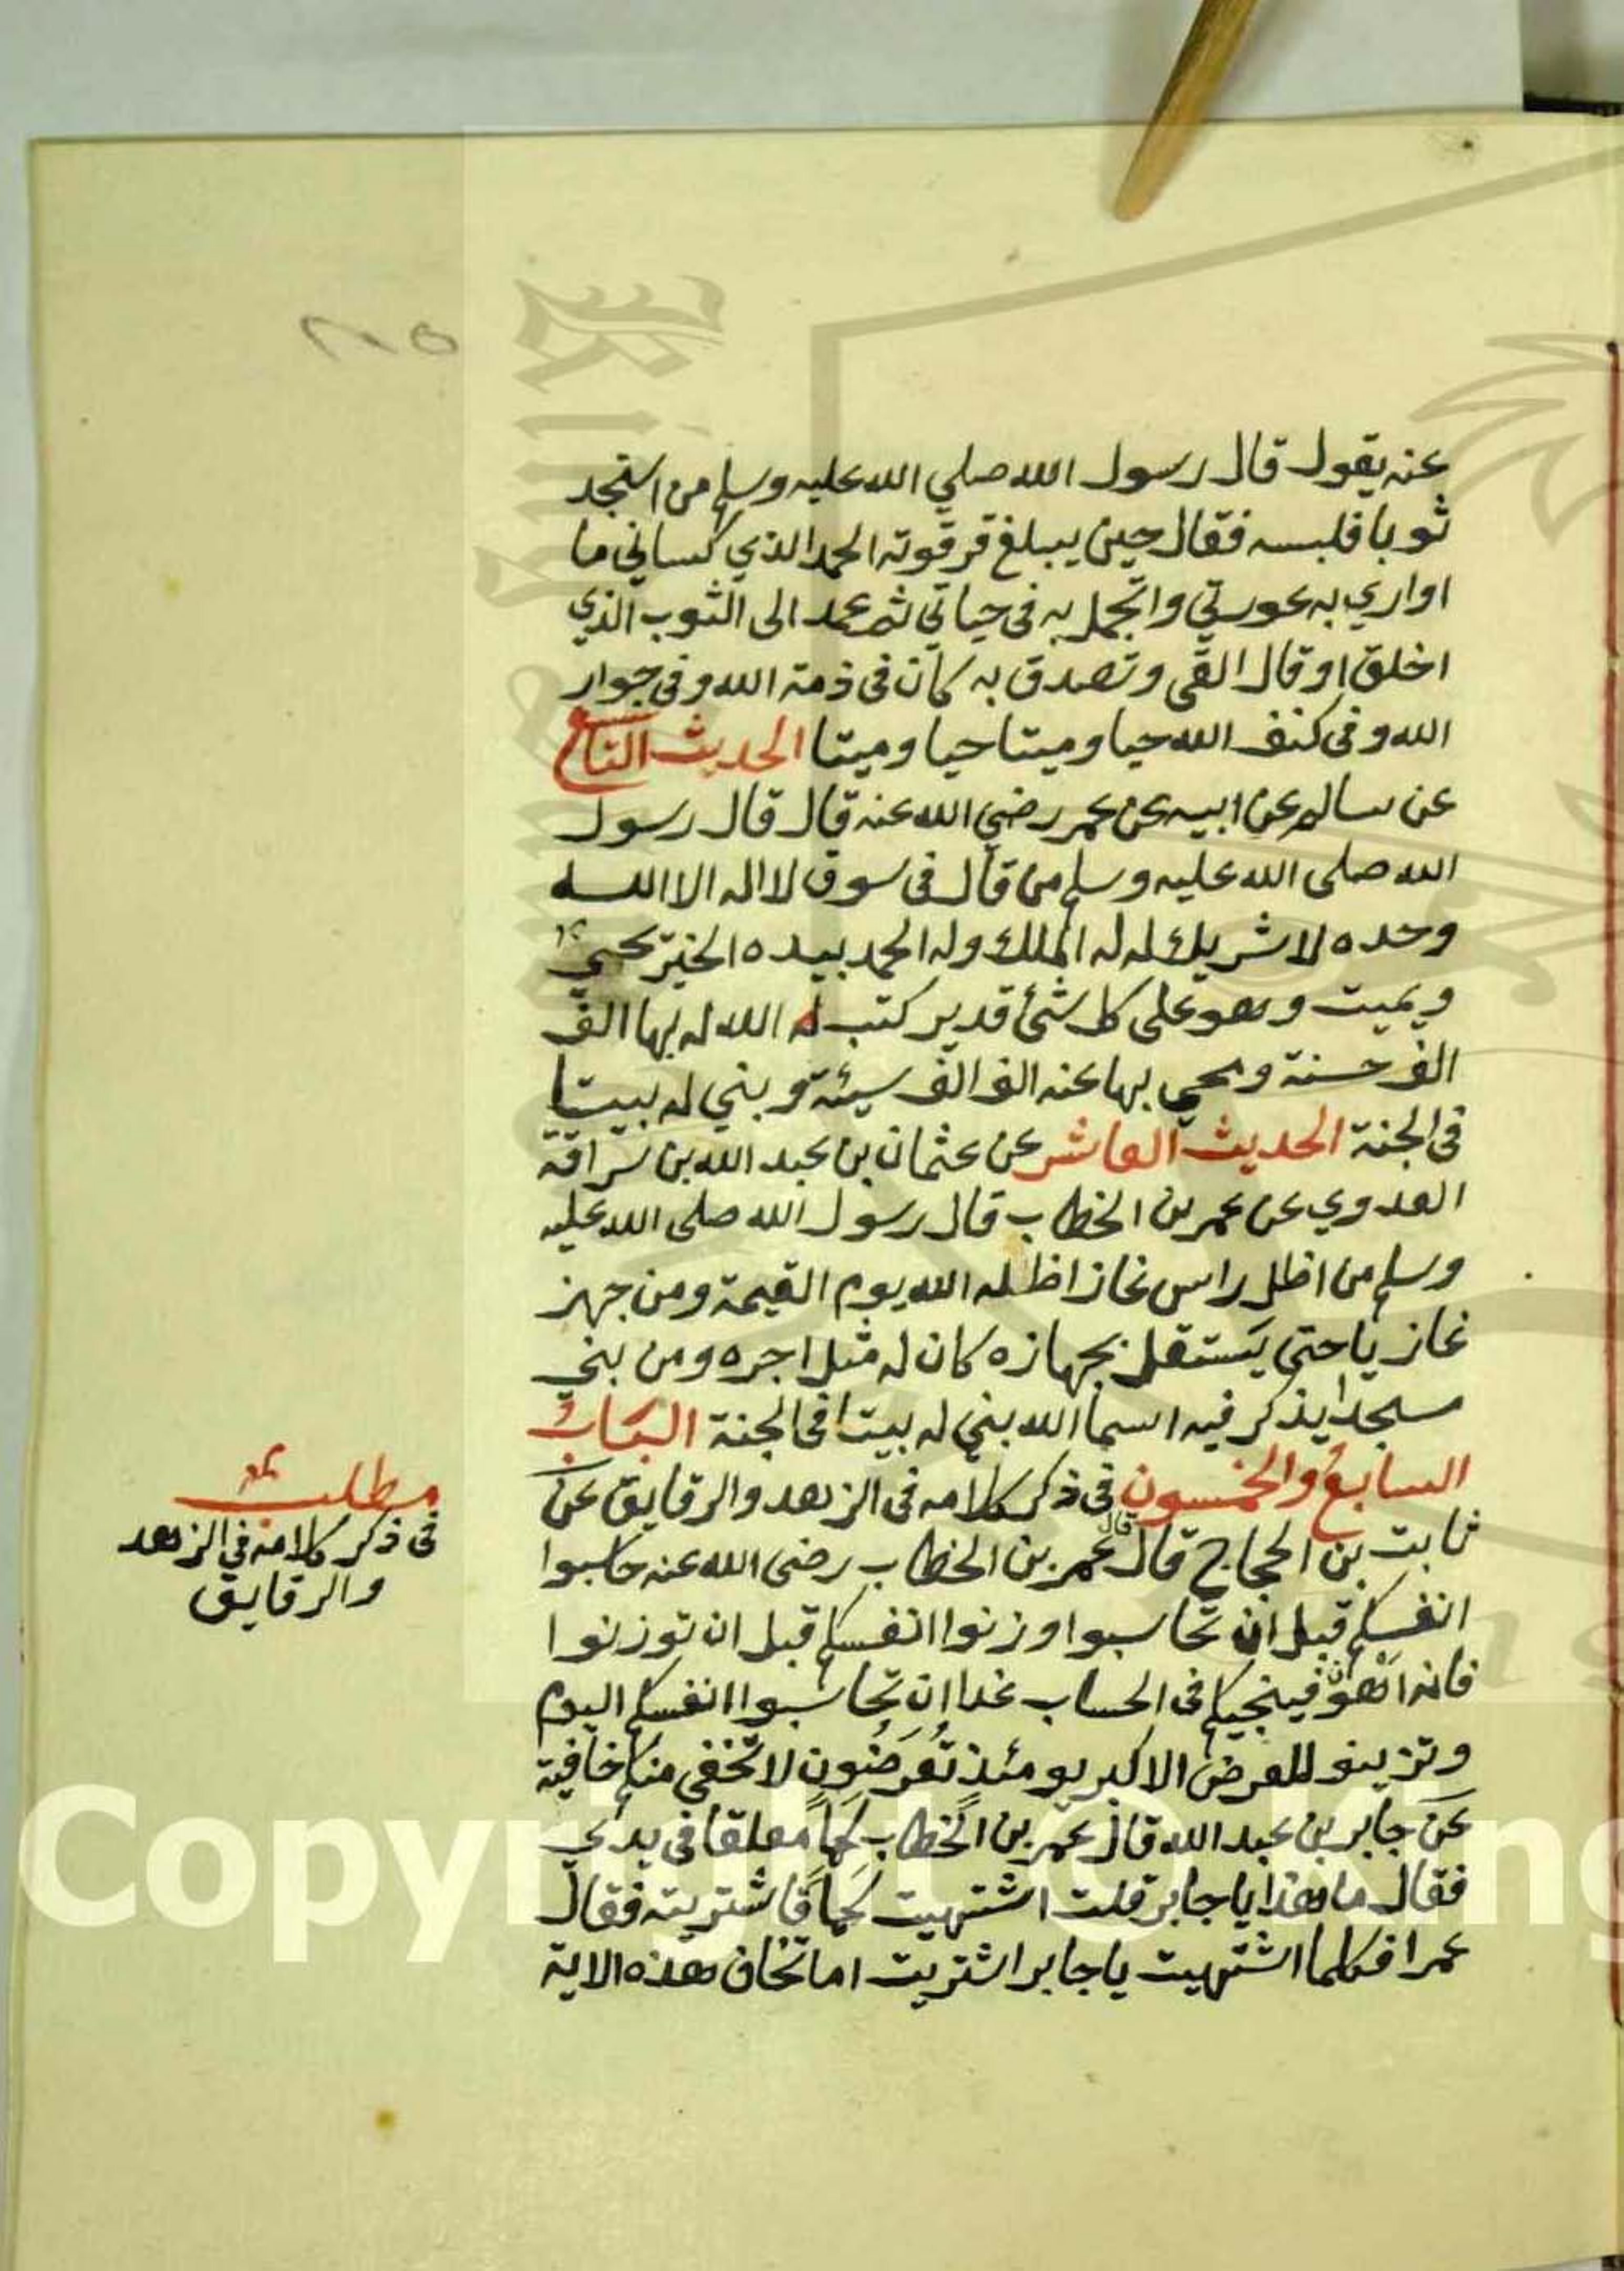 ٢٨٥
عنه يقول قال رسول الله صلي الله عليه وسلم من استجد
ثوبا فلبسه فقال حين يبلغ ترقوته الحمد الذي كساني ما
اواري به عورتي واتجمل به فى حياتي ثم عمد الى الثوب الذي
اخلق او قال القى وتصدق به كان فى ذمة الله وفى جوار
الله وفى كنف الله حيا وميتا حيا وميتا الحديث التاسع
عن سالم عن ابيه عن عمر رضي الله عنه قال قال رسول
الله صلى الله عليه وسلم من قال فى سوق لا اله الا الله
وحده لا شريك له له الملك وله الحمد بيده الخير يحيي
ويميت وهو على كل شئ قدير كتب له الله له بها الف
الف حسنة ومحي بها عنه الف الف سيئة وبني له بيتا
فى الجنة الحديث العاشر عن عثمان بن عبد الله بن سراقة
العدوي عن عمر بن الخطاب قال رسول الله صلى الله عليه
وسلم من اظل راس غاز اظله الله يوم القيمة ومن جهز
غازيا حتى يستقل بجهازه كان له مثل اجره ومن بنى
مسجدا يذكر فيه اسم الله بني له بيتا فى الجنة الباب
السابع والخمسون فى ذكر كلامه فى الزهد والرقايق عن
ثابت بن الحجاج قال قال عمر بن الخطاب رضى الله عنه حاسبوا
انفسكم قبل ان تحاسبوا وزنوا انفسكم قبل ان توزنوا
فانه اهون فينجيكم فى الحساب غدا ان تحاسبوا انفسكم اليوم
وتزينو للعرض الاكبر يومئذ تُعرَضُون لا تخفى منكم خافية
عن جابر بن عبد الله قال عمر بن الخطاب لحماً معلقا فى يدي
فقال ما هذا يا جابر قلت اشتهيت لحماً فاشتريته فقال
عمر افكلما اشتهيت يا جابر اشتريت اما تخاف هذه الاية
مطلب
فى ذكر كلامه في الزهد
والرقايق
Copyright © King